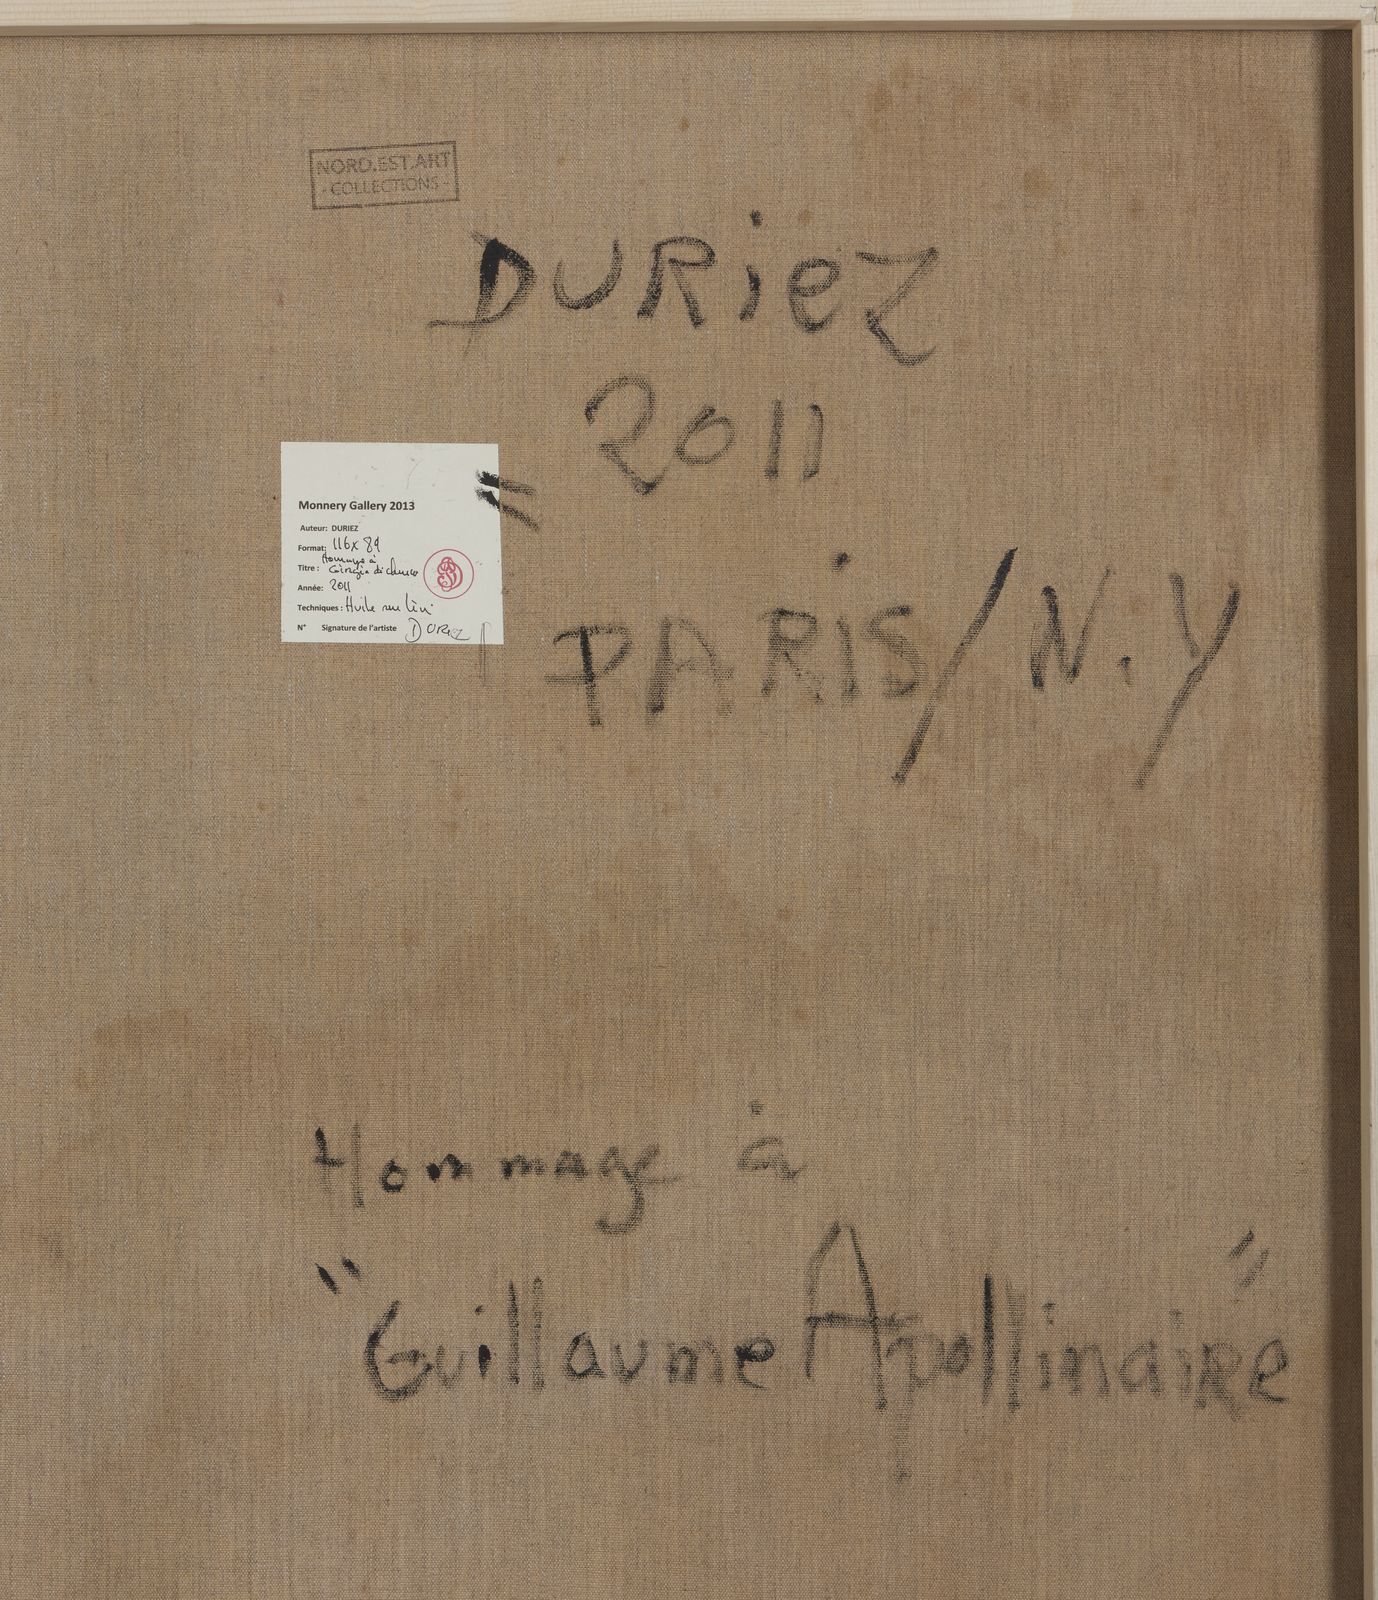 NORD.EST.ART
- COLLECTIONS -
DURiEZ
2011
"
PARiS/N.Y
Monnery Gallery 2013
Auteur: DURIEZ
Format: 116x89
Titre : Hommage à
Giorgio di Chirico
Année: 2011
Techniques : Huile sur lin
N° Signature de l'artiste DURiEZ
Hommage à
"Guillaume Apollinaire"